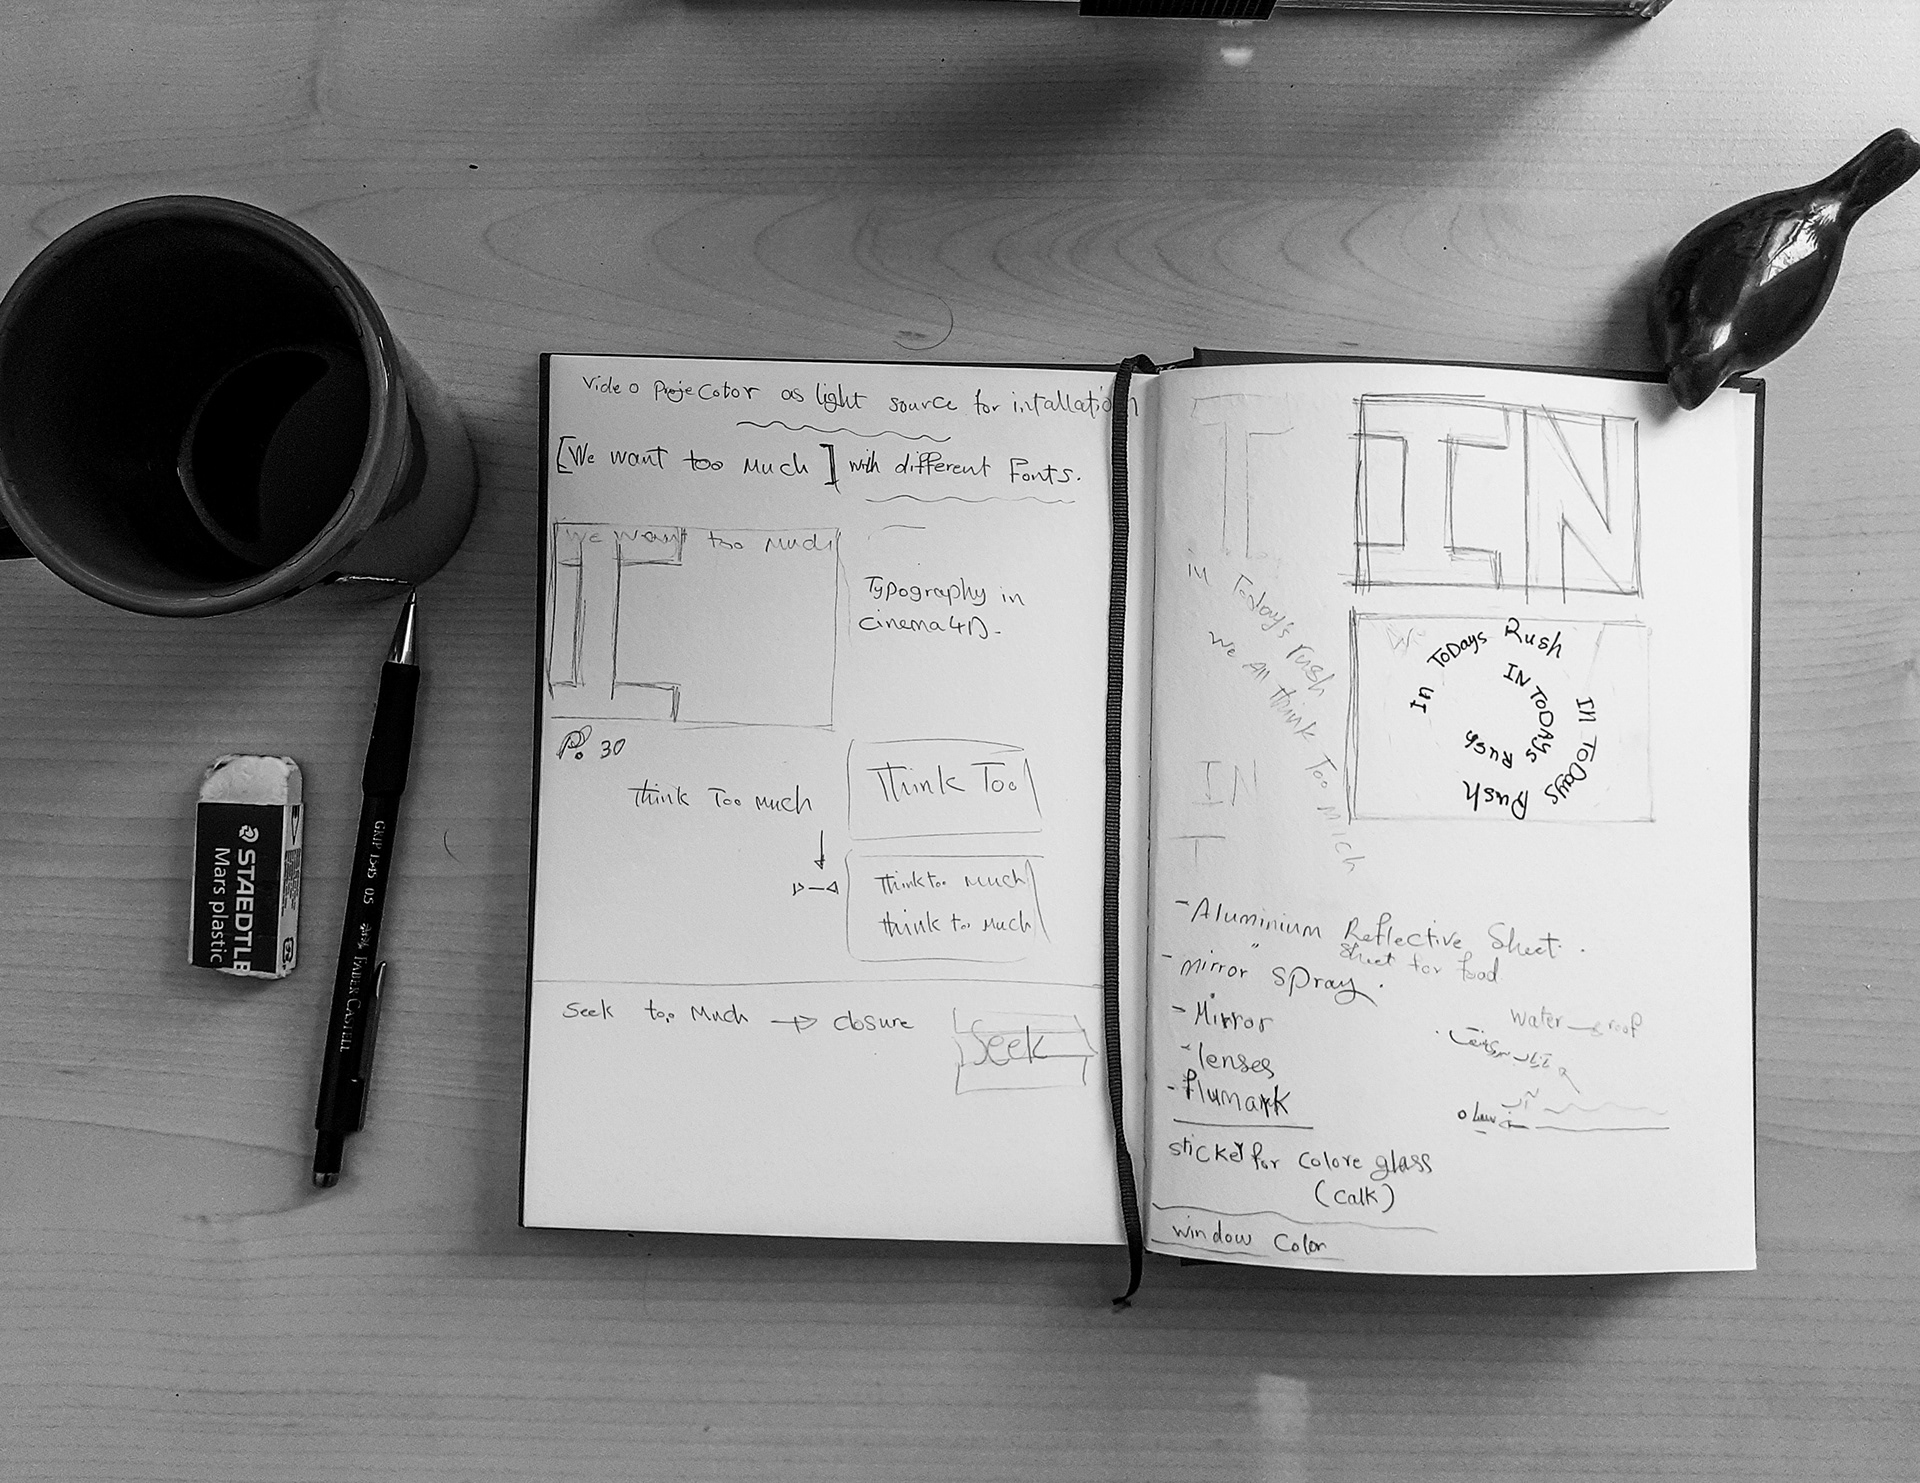 Video ProjeCotor as light source for intallation
[We want too Much] with different Fonts.
We want too Much
Typography in
cinema4D.
P. 30
think Too Much
Think Too
Think too Much
think too Much
Seek too Much → closure
Seek
T
IN
in Today's rush
we All think Too Much
In ToDays Rush
IN ToDays Rush
IN ToDAYs Rush
IN
T
- Aluminium Reflective Sheet.
" sheet for food
- mirror spray.
- Mirror
- lenses
- Plumark
sticker for colore glass
(calk)
window Color
Water
آب
STAEDTLE
Mars plastic
GRIP 1345 0.5 FABER-CASTELL